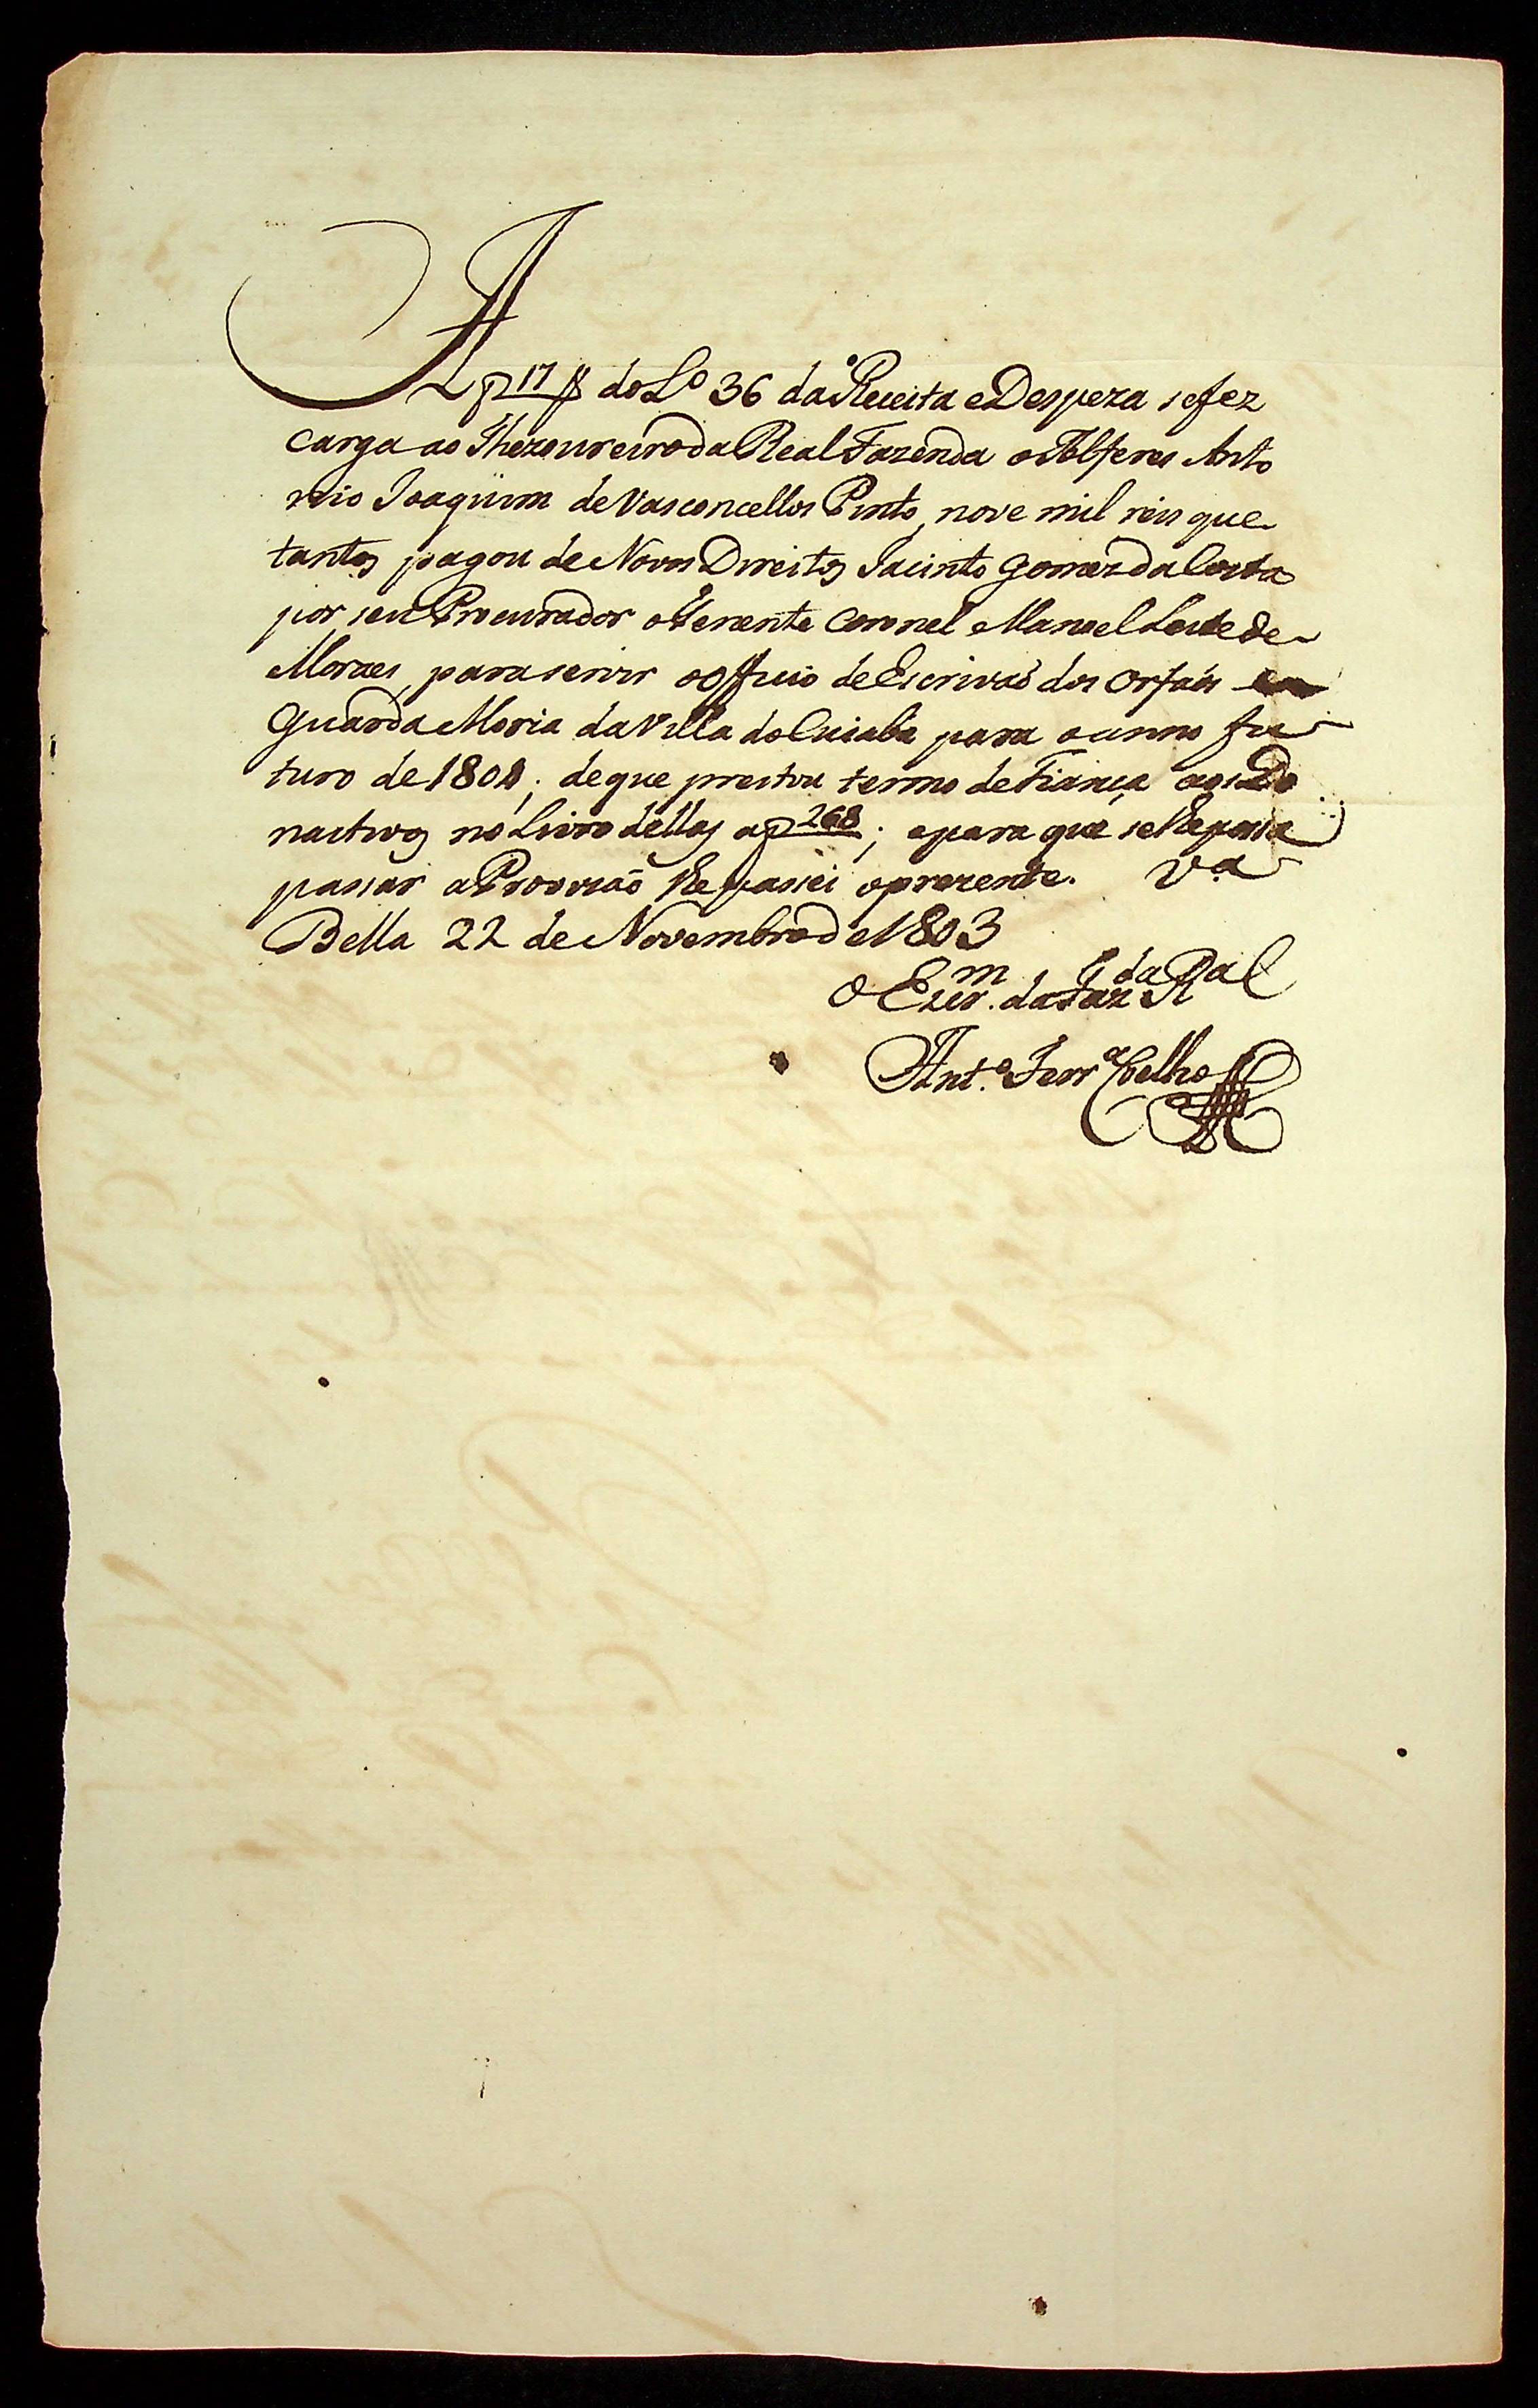 A p 17 V do L.o 36 da Receita e Despeza se fez
carga ao Thezoureiro da Real Fazenda o Alferes Anto
nio Joaquim de Vasconcellos Pinto, nove mil reis que
tantos pagou de Novos Direitos Jacinto Gomes da Costa
por seu Procurador o Tenente Coronel Manoel Leite de
Moraes, para servir o Officio de Escrivaõ dos Orfaõs
Guarda Moria da Villa do Cuiaba para o anno fu
turo de 1804; de que prestou termo de Fiança aos Do
nactivos no Livro dellas a p 268; e para que se lhe possa
passar a Provizaõ lhe passei o prezente. V.a
Bella 22 de Novembro de 1803
O Escr.m da Faz.da R.al
Ant.o Ferr.a Coelho